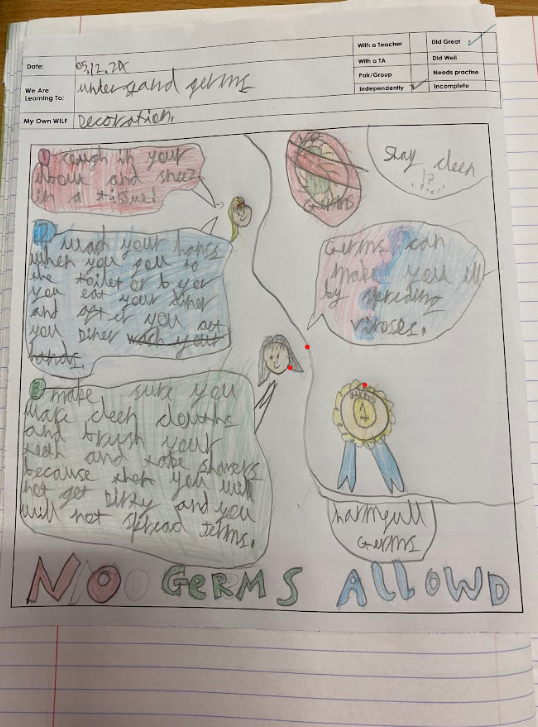 Date:
05.12.24
We Are Learning To:
understand germs
My Own WILF
Decoration.
With a Teacher
With a TA
Pair/Group
Independently
Did Great
Did Well
Needs practise
Incomplete
1 cough in your
and sneez
in a tissue!
2 wash your hans
when you gou to
the toilet or
you eat your diner
and after you
you diner wash your
hands.
3 make sure you
wake cleen clouths
and brush your
teeth and take showers
because then you will
not get dirty and you
will not spread terms.
NO
GERMS
Stay cleen
!?
Germs can
make you ill
by spreding
viroses.
1
harmfull
Germs
NO GERMS ALLOWD